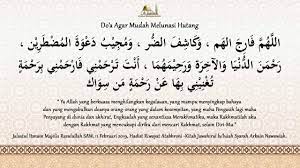 Do'a Agar Mudah Melunasi Hutang
اللَّهُمَّ فَارِجَ الهَمِّ ، وَكَاشِفَ الضُّرِّ ، وَمُجِيْبَ دَعْوَةِ الْمُضْطَرِّيْنَ ،
رَحْمَنَ الدُّنْيَا وَالآخِرَةِ وَرَحِيْمَهُمَا ، أَنْتَ تَرْحَمُنِي فَارْحَمْنِي بِرَحْمَةٍ
تُغْنِيْنِي بِهَا عَنْ رَحْمَةِ مَنْ سِوَاكَ
" Ya Allah yang berkuasa menghilangkan kegalauan, yang mampu menyingkap bahaya
dan yang mengabulkan doanya orang orang yang dalam kesulitan, yang maha Pengasih lagi maha
Penyayang di dunia dan akhirat, Engkaulah yang senantiasa Merahmatiku, maka Rahmatilah aku
dengan Rahmat yang mencukupi diriku dari mencari Rahmat, selain Dari-Mu."
Jalsatul Itsnain Majelis Rasulullah SAW, 11 Februari 2019, Hadist Riwayat Atabhroni -Kitab Jawahirul lu'luiah Syarah Arbain Nawawiah.